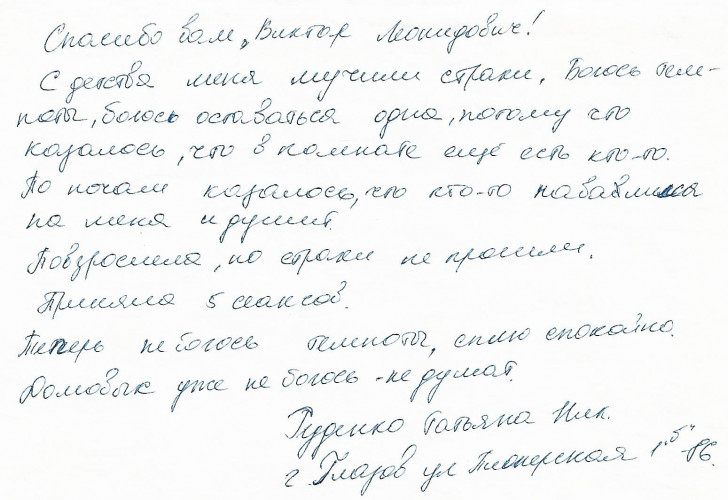 Спасибо вам, Виктор Леонидович!
С детства меня мучили страхи. Боюсь тем-
ноты, боюсь оставаться одна, потому что
казалось, что в комнате ещё есть кто-то.
По ночам казалось, что кто-то нававлился
на меня и душит.
Повзрослела, но страхи не прошли.
Приняла 5 сеансов.
Теперь не боюсь темноты, сплю спокойно.
Домовых уже не боюсь - не думат.
Руденко Татьяна Ник.
г. Глазов ул Пионерская 1"б"-86.